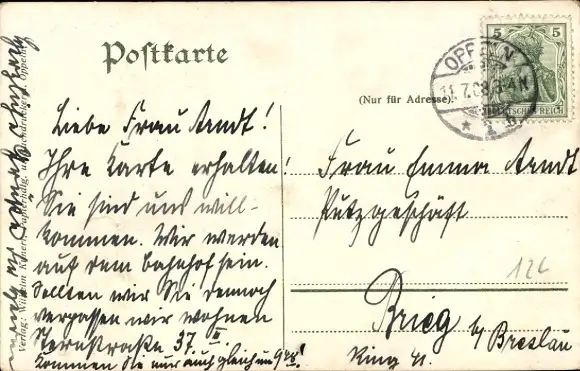 Postkarte
(Nur für Adresse)
5 5
DEUTSCHES REICH
OPPELN
11.7.08
Liebe Frau Arndt!
Ihre Karte erhalten!
Sie sind uns will-
kommen. Wir werden
auf dem Bahnhof sein.
Sollten wir Sie dennoch
verpassen wir wohnen
Sternstraße 37. II.
Kommen Sie nur auch gleich um
Frau Emma Arndt
Putzgeschäft
Brieg b/ Breslau
Ring 41.
126
Verlag: Wilhelm